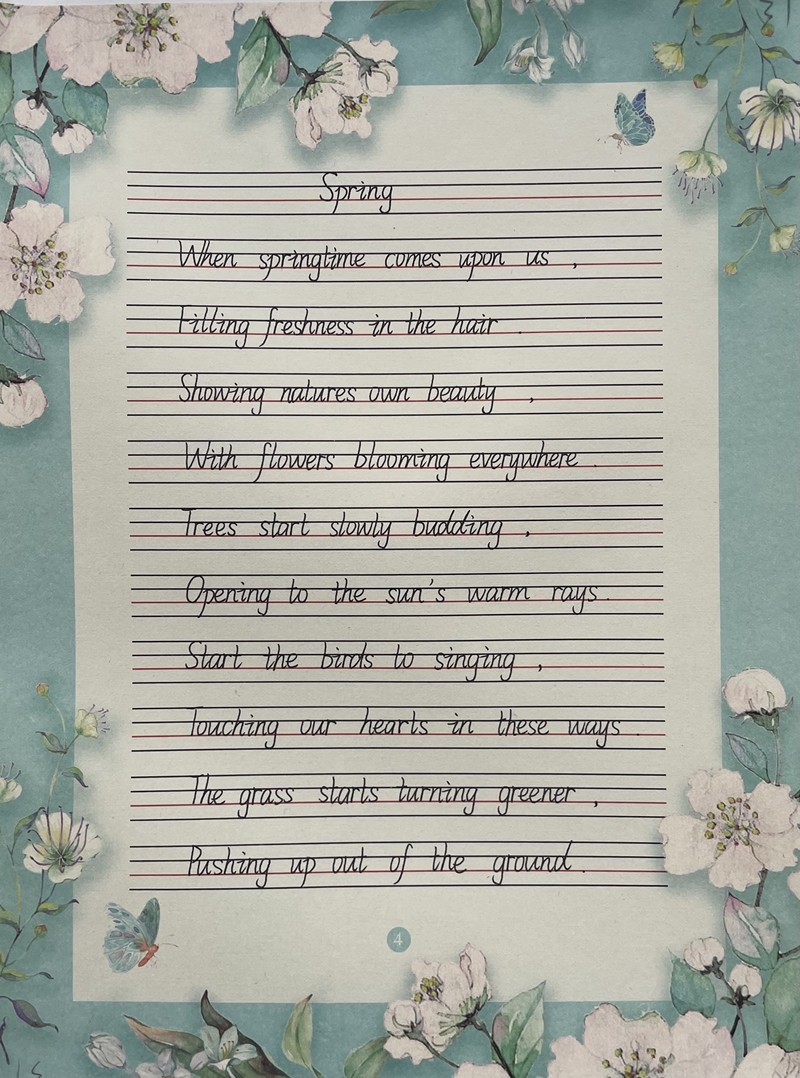 Spring
When springtime comes upon us ,
Filling freshness in the hair .
Showing natures own beauty ,
With flowers blooming everywhere .
Trees start slowly budding ,
Opening to the sun's warm rays .
Start the birds to singing ,
Touching our hearts in these ways .
The grass starts turning greener ,
Pushing up out of the ground .
4